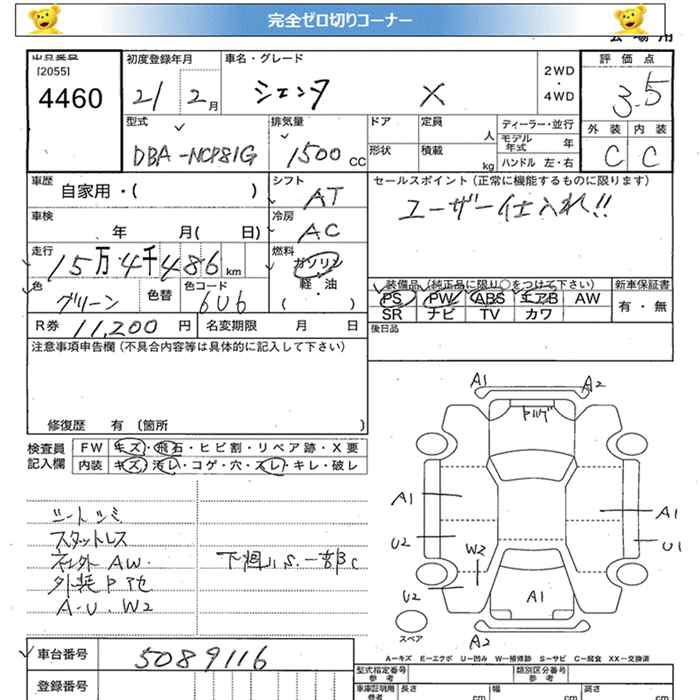 完全ゼロ切りコーナー
出品番号
[2055]
4460
初度登録年月
21 2月
車名・グレード
シエンタ X
2WD
・
4WD
評価点
3.5
外装 内装
C C
型式
DBA-NCP81G
排気量
1500 CC
ドア 定員 人
形状 積載 kg
ディーラー・並行
モデル年式 年
ハンドル 左・右
車歴
自家用・( )
シフト
AT
セールスポイント(正常に機能するものに限ります)
ユーザー仕入れ!!
車検
年 月( 日)
冷房
AC
走行
15万4千486 km
燃料
ガソリン
軽・油
( )
色
グリーン
色替
色コード
6U6
装備品(純正品に限り○をつけて下さい)
PS PW ABS エアB AW
SR ナビ TV カワ
新車保証書
有・無
R券 11,200 円
名変期限 月 日
後日品
注意事項申告欄(不具合内容等は具体的に記入して下さい)
修復歴 有(箇所 )
検査員
記入欄
FW キズ・飛石・ヒビ割・リペア跡・X要
内装 キズ・汚レ・コゲ・穴・スレ・キレ・破レ
シートシミ
スタットレス
社外AW.
下廻りS.一部C
A.U.W2
A1 A2
A1 A1
U2 U1
W2
U2 A1
スペア
A2
A-キズ E-エクボ U-凹み W-補修跡 S-サビ C-腐食 XX-交換済
車台番号 5089116
登録番号
型式指定番号
参考
類別区分番号
参考
車庫証明用
参考
長さ cm
幅 cm
高さ cm